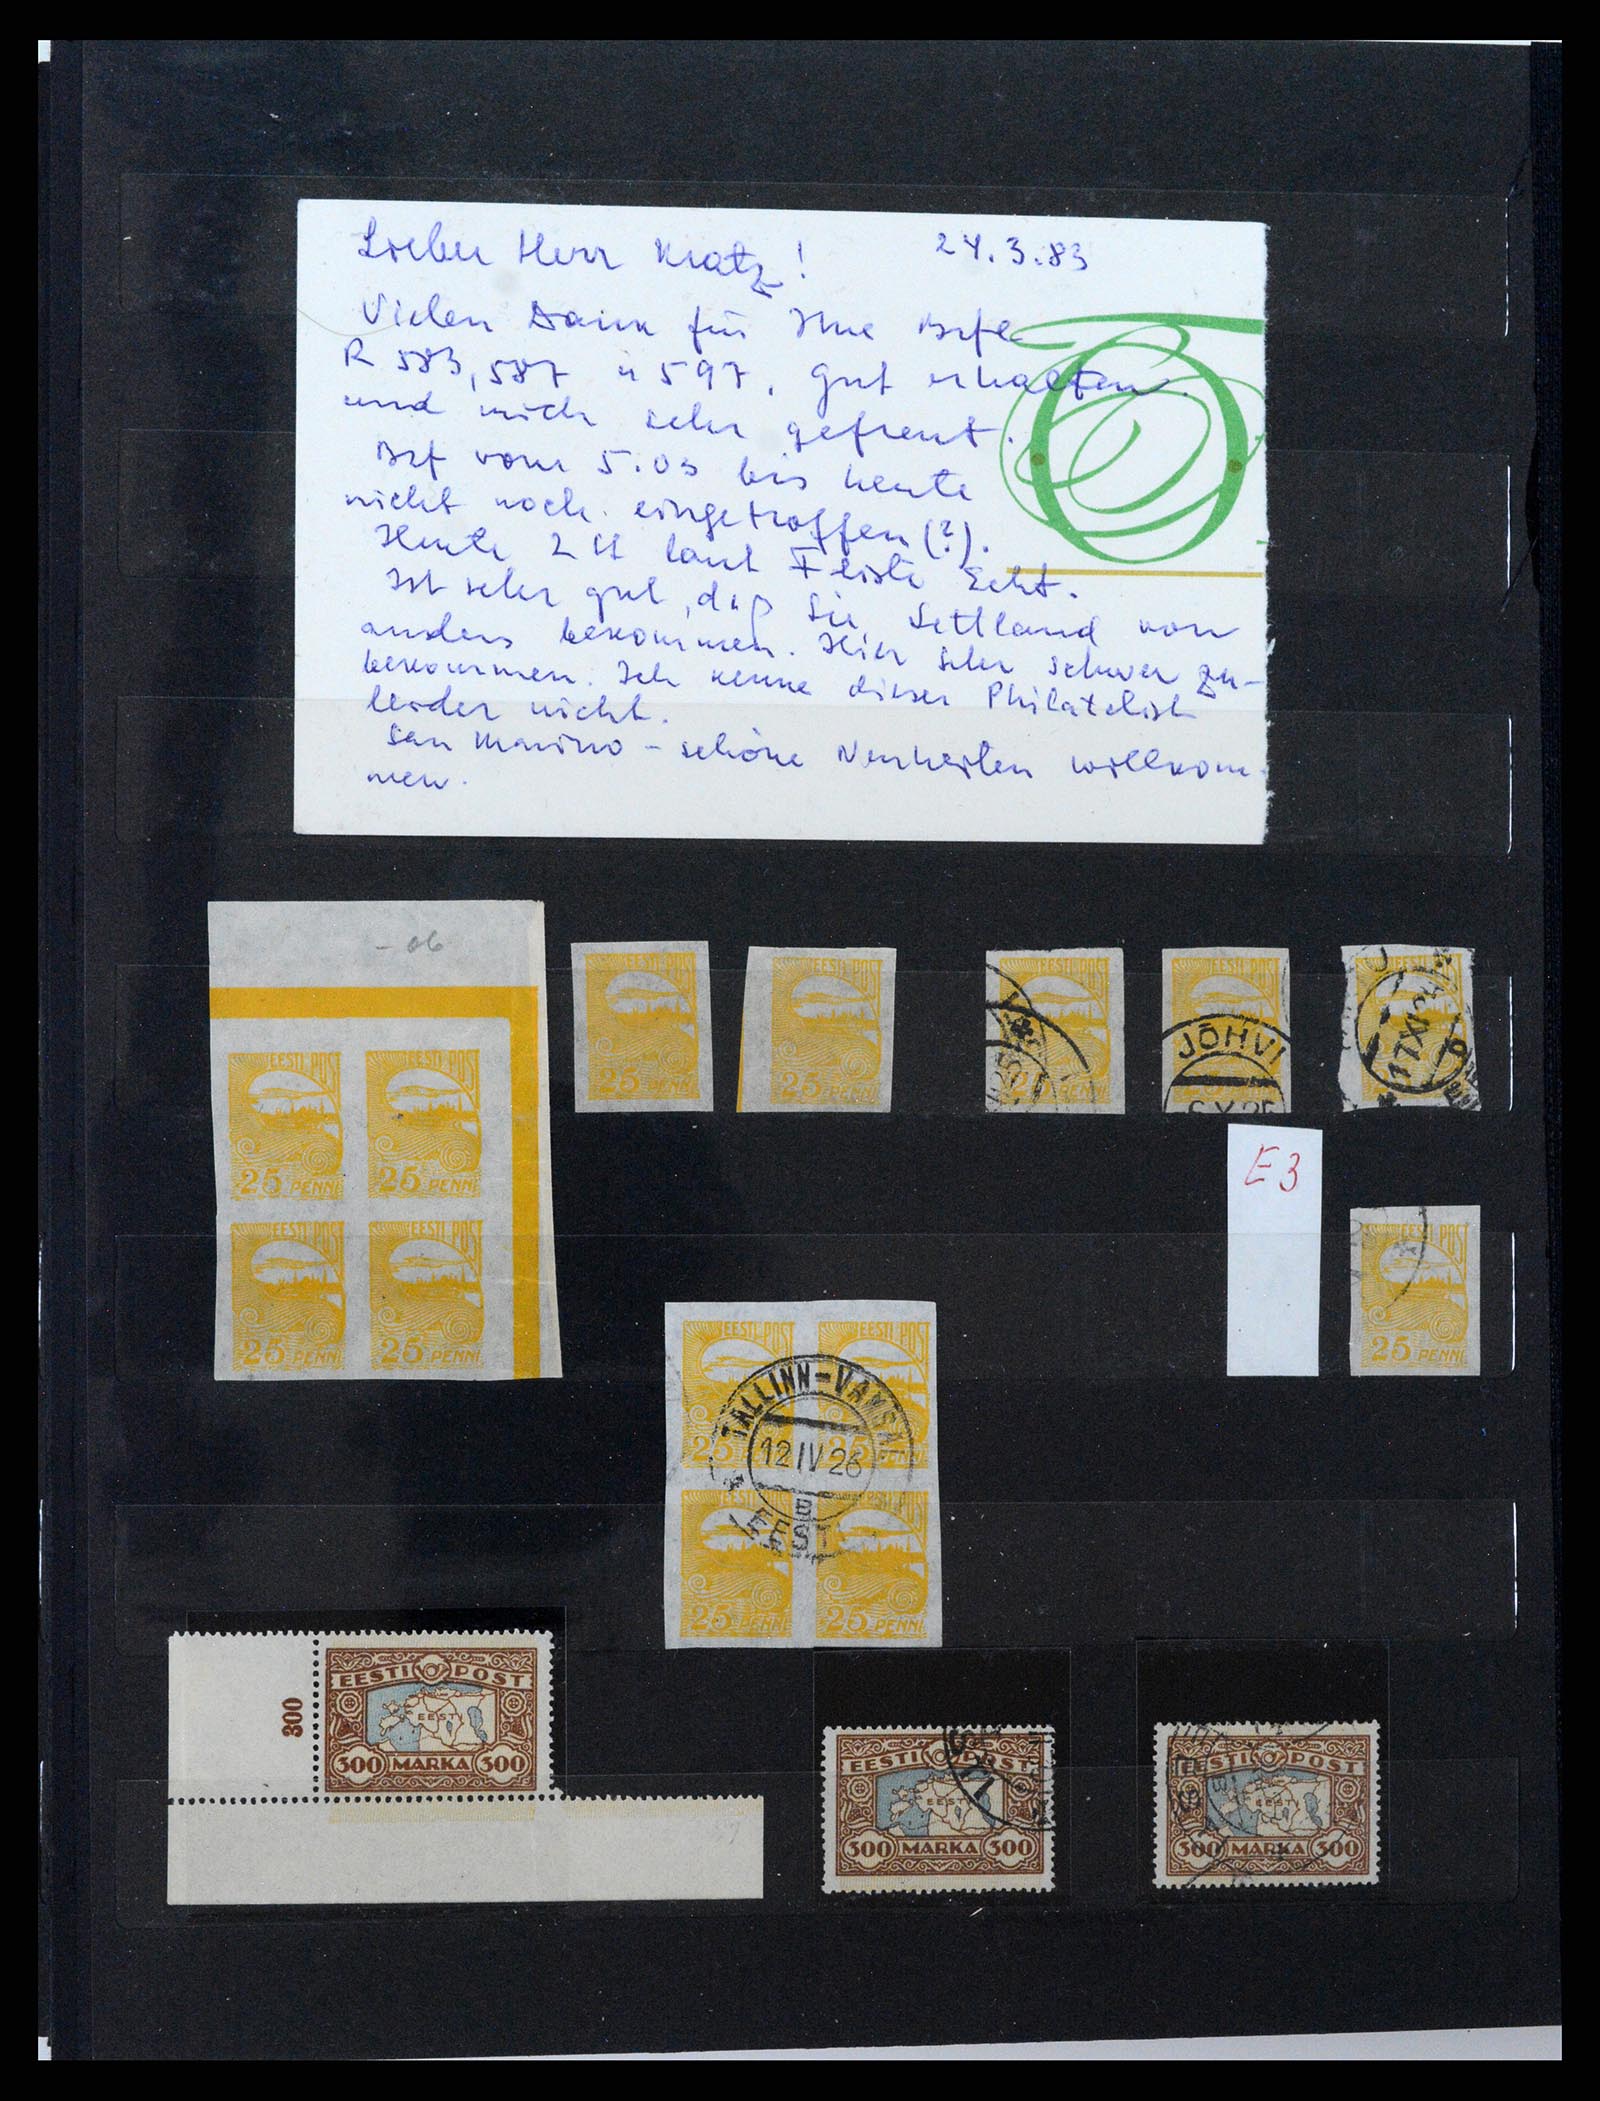 Lieber Herr Kratz! 24.3.83
Vielen Dank für Ihre Brfe
R 583, 587 u 597. gut erhalten.
und mich sehr gefreut.
Brf vom 5.03 bis heute
nicht noch eingetroffen (?).
Heute 2 laut Fliste Echt.
Ist sehr gut, daß Sie Lettland von
anders bekommen. Hier sehr schwer zu-
bekommen. Ich kenne dieser Philatelist
leider nicht.
San Marino - schöne Neuheiten willkom-
men.
- 06
EESTI POST EESTI POST
25 PENNI 25 PENNI
EESTI POST EESTI POST
25 PENNI 25 PENNI
EESTI POST
25 PENNI
EESTI POST
25 PENNI
EESTI POST
25 PENNI
EESTI POST
JÕHVI
EESTI POST
17 XI
E3
EESTI POST
25 PENNI
EESTI POST EESTI POST
25 25 PENNI
EESTI POST
25 PENNI 25 PENNI
TALLINN-VAKSAL
12 IV 26
B
EESTI
300
EESTI POST
EESTI
300 MARKA 300
EESTI POST
EESTI
300 MARKA 300
EESTI POST
EESTI
300 MARKA 300